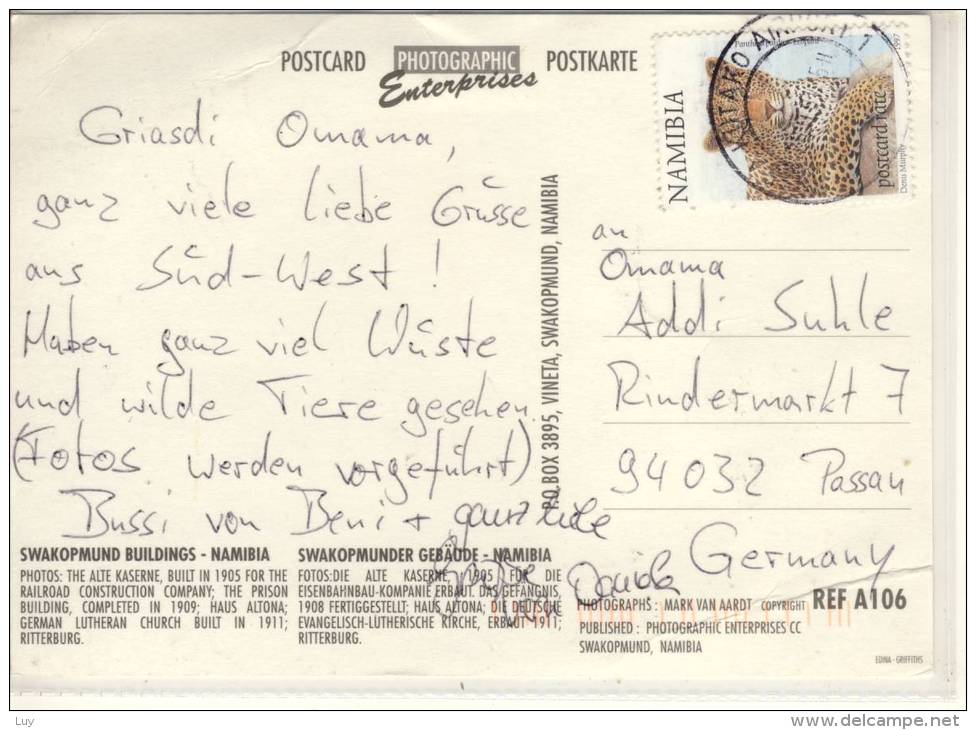 POSTCARD PHOTOGRAPHIC Enterprises POSTKARTE
Griasdi Omama,
ganz viele liebe Grüsse
aus Süd-West!
Haben ganz viel Wüste
und wilde Tiere gesehen.
(Fotos werden vorgeführt)
Bussi von Beni + ganz liebe
Grüße von
P.O.BOX 3895, VINETA, SWAKOPMUND, NAMIBIA
NAMIBIA
postcard rate
Denis Murphy
1997
AIRPORT 1
an
Omama
Addi Suhle
Rindermarkt 7
94032 Passau
Germany
SWAKOPMUND BUILDINGS - NAMIBIA
PHOTOS: THE ALTE KASERNE, BUILT IN 1905 FOR THE
RAILROAD CONSTRUCTION COMPANY; THE PRISON
BUILDING, COMPLETED IN 1909; HAUS ALTONA;
GERMAN LUTHERAN CHURCH BUILT IN 1911;
RITTERBURG.
SWAKOPMUNDER GEBÄUDE - NAMIBIA
FOTOS:DIE ALTE KASERNE, 1905 FÜR DIE
EISENBAHNBAU-KOMPANIE ERBAUT. DAS GEFÄNGNIS,
1908 FERTIGGESTELLT; HAUS ALTONA; DIE DEUTSCHE
EVANGELISCH-LUTHERISCHE KIRCHE, ERBAUT 1911;
RITTERBURG.
PHOTOGRAPHS : MARK VAN AARDT COPYRIGHT REF A106
PUBLISHED : PHOTOGRAPHIC ENTERPRISES CC
SWAKOPMUND, NAMIBIA
EDINA - GRIFFITHS
Luy
delcampe.net